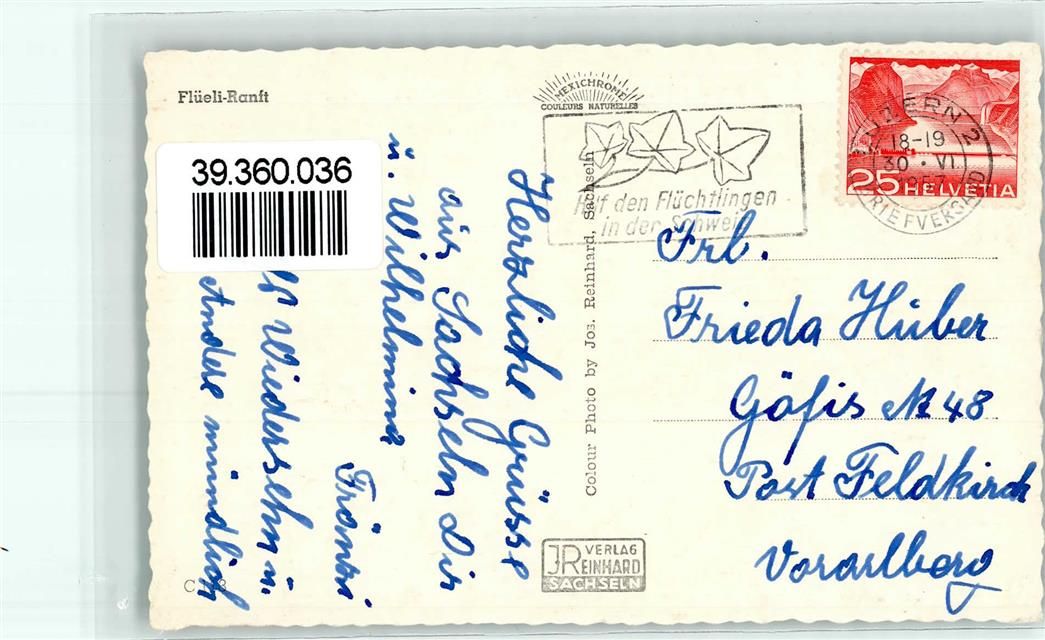 Flüeli-Ranft
MEXICHROME
COULEURS NATURELLES
39.360.036
Helft den Flüchtlingen
in der Schweiz
LUZERN 2
18-19
30.VI.
1957
BRIEFVERSAND
25 HELVETIA
Herzliche Grüsse
aus Sachseln Dir
u. Wilhelmina
Frömsi
Wiedersehn u.
Andere mündlich
Colour Photo by Jos. Reinhard, Sachseln
Frl.
Frieda Hüber
Göfis № 48
Post Feldkirch
Vorarlberg
JR VERLAG
REINHARD
SACHSELN